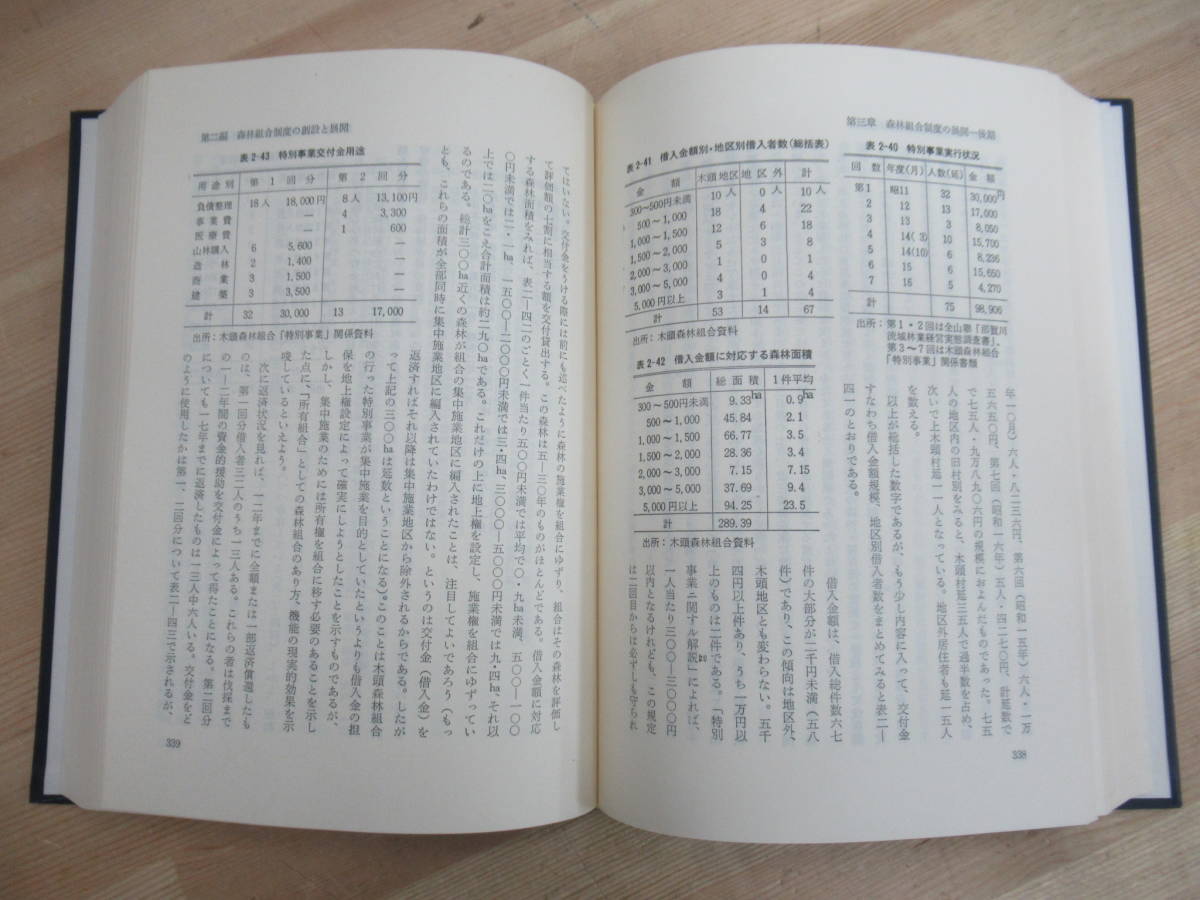 第三章　森林組合制度の展開―後期
表2-40　特別事業実行状況
回数　年度(月)　人数(延)　金額
第1　昭11　32　30,000円
2　12　13　17,000
3　13　3　8,050
4　14(3)　10　15,700
5　14(10)　6　8,236
6　15　6　15,650
7　15　5　4,270
計　75　98,906
出所：第1・2回は全山聯「那賀川
流域林業経営実態調査書」、
第3～7回は木頭森林組合
「特別事業」関係書類
年一〇月）六人・八二三六円、第六回（昭和一五年）六人・一万
五六五〇円、第七回（昭和一六年）五人・四二七〇円、計延数で
で七五人・九万八九〇六円の規模におよんだものであった。七五
人の地区内の旧村別をみると、木頭村延三五人で過半数を占め、
次いで上木頭村延一一人となっている。地区外居住者も延一五人
を数える。
以上が総括した数字であるが、もう少し内容に入って、交付金
すなわち借入金額規模、地区別借入者数をまとめてみると表二―
四一のとおりである。
表2-41　借入金額別・地区別借入者数(総括表)
金額　木頭地区　地区外　計
300～500円未満　10人　0人　10人
500～1,000　18　4　22
1,000～1,500　12　6　18
1,500～2,000　5　3　8
2,000～3,000　1　0　1
3,000～5,000　4　0　4
5,000円以上　3　1　4
計　53　14　67
出所：木頭森林組合資料
表2-42　借入金額に対応する森林面積
金額　総面積　1件平均
300～500円未満　9.33ha　0.9ha
500～1,000　45.84　2.1
1,000～1,500　66.77　3.5
1,500～2,000　28.36　3.4
2,000～3,000　7.15　7.15
3,000～5,000　37.69　9.4
5,000円以上　94.25　23.5
計　289.39
出所：木頭森林組合資料
借入金額は、借入総件数六七
件の大部分が二千円未満（五八
件）であり、この傾向は地区外、
木頭地区とも変わらない。五千
円以上四件あり、うち一万円以
上のものは二件である。「特別
事業ニ関スル解説」によれば、
一人当たり三〇〇―三〇〇〇円
以内となるけれども、この規定
は二回目からは必ずしも守られ
338
第二編　森林組合制度の創設と展開
表2-43　特別事業交付金用途
用途別　第1回分　第2回分
負債整理　18人　18,000円　8人　13,100円
事業費　―　4　3,300
医療費　―　1　600
山林購入　6　5,600　―
造林　2　1,400　―
商業　3　1,500　―
建築　3　3,500　―
計　32　30,000　13　17,000
出所：木頭森林組合「特別事業」関係資料
てはいない。交付金をうける際には前にも述べたように森林の施業権を組合にゆずり、組合はその森林を評価し
て評価額の七割に相当する額を交付貸出する。この森林は五―三〇年のものがほとんどである。借入金額に対応
する森林面積をみれば、表二―四二のごとく一件当たり五〇〇円未満では平均で〇・九ha未満、五〇〇―一〇〇
〇円未満では二・一ha、一五〇〇―二〇〇〇円未満では三・四ha、三〇〇〇―五〇〇〇円未満では九・四ha、それ以
上では二〇haをこえ合計面積は約二九〇haである。これだけの上に地上権を設定し、施業権を組合にゆずってい
るのである。総計三〇〇ha近くの森林が組合の集中施業地区に編入されたことは、注目してよいであろう（もっ
とも、これらの面積が全部同時に集中施業地区に編入されていたわけではない。というのは交付金（借入金）を
返済すればそれ以降は集中施業地区から除外されるからである。したが
って上記の三〇〇haは延数ということになる）。このことは木頭森林組合
の行った特別事業が集中施業を目的としていたというよりも借入金の担
保を地上権設定によって確実にしようとしたことを示すものであるが、
しかし、集中施業のためには所有権を組合に移す必要のあることを示し
た点に、「所有組合」としての森林組合のあり方、機能の現実的効果を示
唆しているといえよう。
次に返済状況を見れば、一二年までに全額または一部返済償還したも
のは、第一回分借入者三二人のうち一三人ある。これらの者は伐採まで
の一―二年間の資金的援助を交付金によって得たことになる。第二回分
についても一七年までに返済したものは一三人中六人いる。交付金をど
のように使用したかは第一、二回分について表二―四三で示されるが、
339